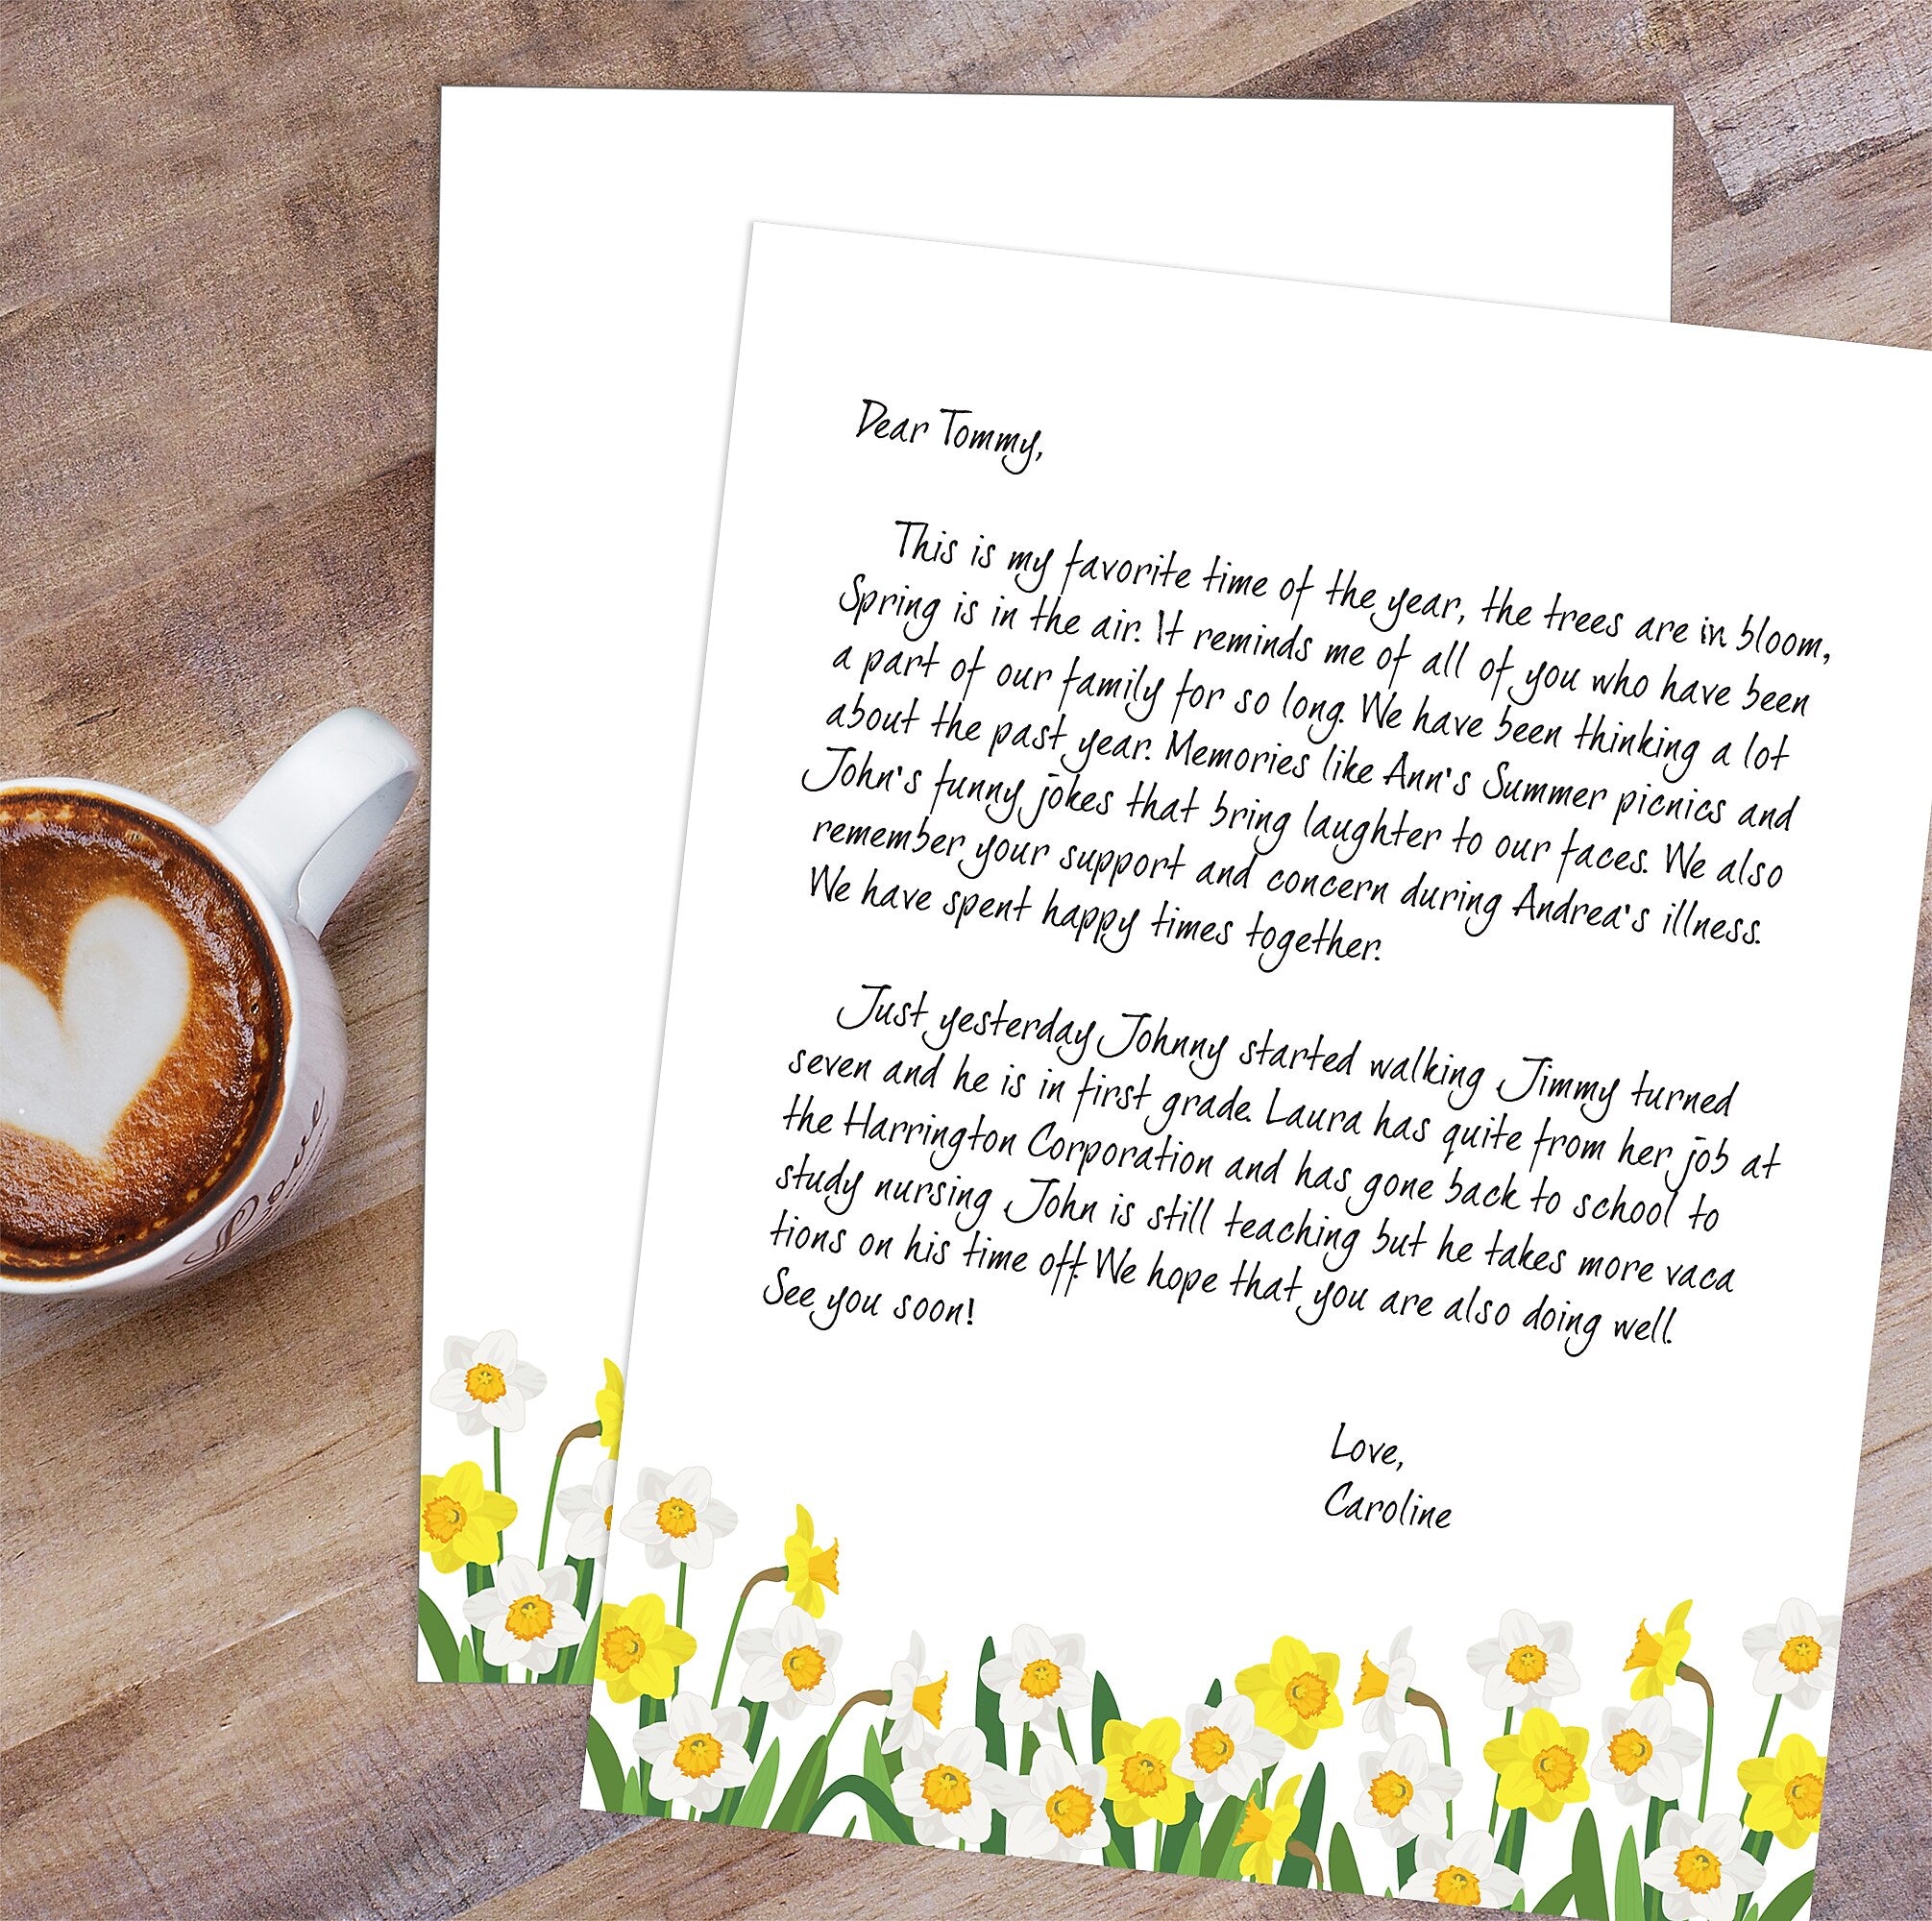 Dear Tommy,
This is my favorite time of the year, the trees are in bloom,
Spring is in the air. It reminds me of all of you who have been
a part of our family for so long. We have been thinking a lot
about the past year. Memories like Ann's Summer picnics and
John's funny jokes that bring laughter to our faces. We also
remember your support and concern during Andrea's illness.
We have spent happy times together.
Just yesterday Johnny started walking Jimmy turned
seven and he is in first grade. Laura has quite from her job at
the Harrington Corporation and has gone back to school to
study nursing John is still teaching but he takes more vaca
tions on his time off. We hope that you are also doing well.
See you soon!
Love,
Caroline
Love